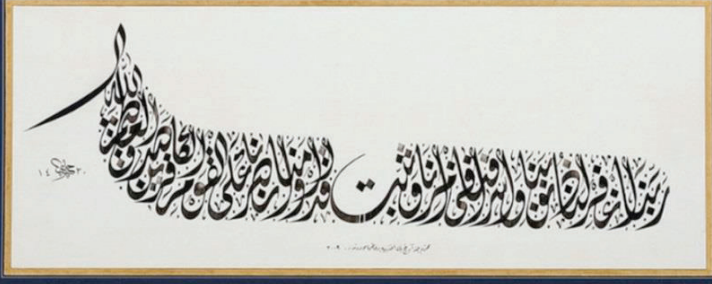 ربنا اغفر لنا ذنوبنا واسرافنا في امرنا وثبت اقدامنا وانصرنا على القوم الكافرين صدق الله العظيم
١٤٢٠